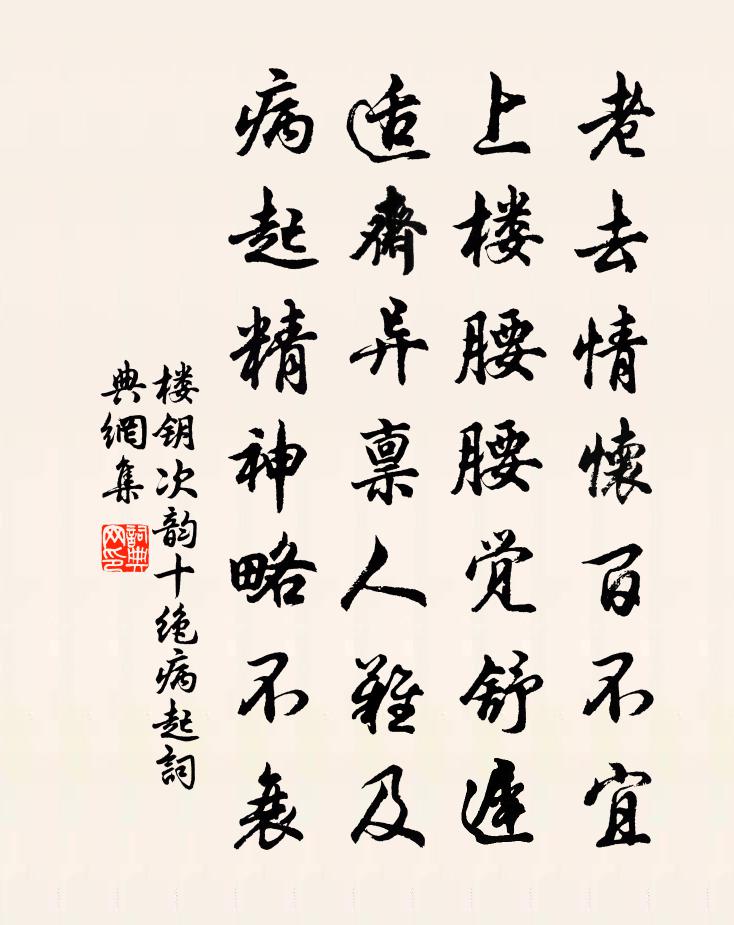 老去情懷百不宜
上楼腰腰觉舒遲
适齋异禀人難及
病起精神略不衰
楼钥次韵十绝病起詞
典網集
詞典
网印